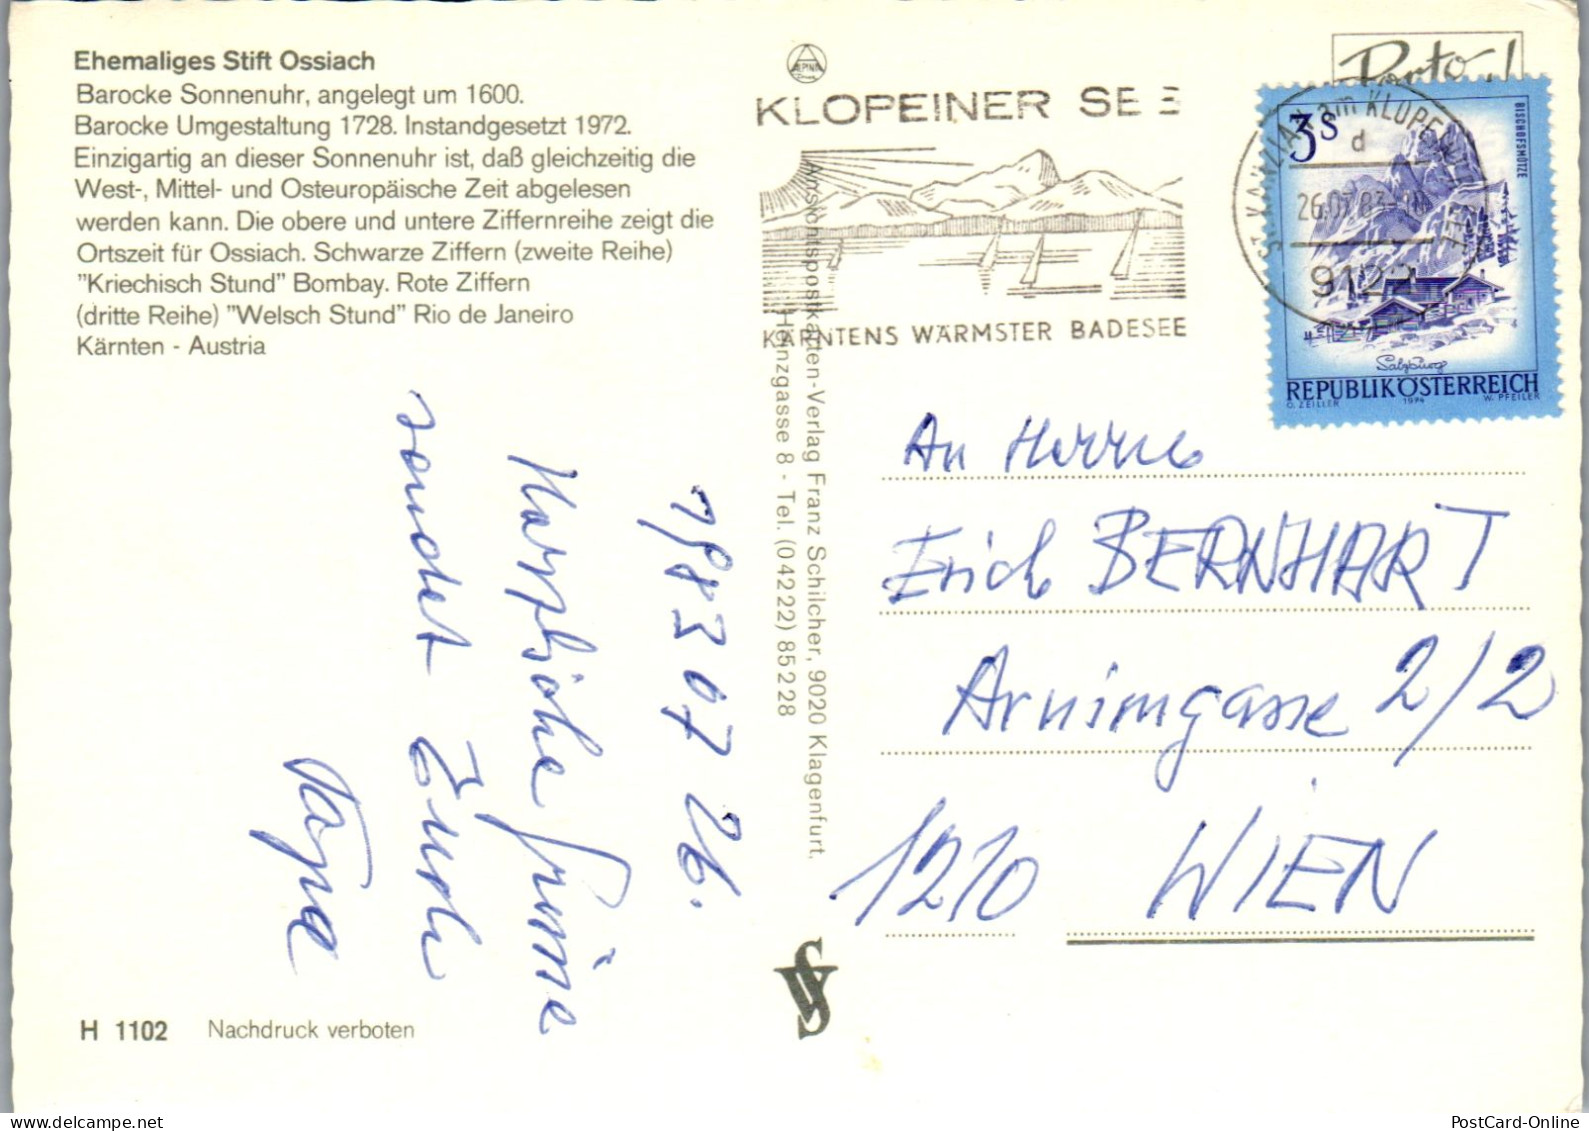 Ehemaliges Stift Ossiach
Barocke Sonnenuhr, angelegt um 1600.
Barocke Umgestaltung 1728. Instandgesetzt 1972.
Einzigartig an dieser Sonnenuhr ist, daß gleichzeitig die
West-, Mittel- und Osteuropäische Zeit abgelesen
werden kann. Die obere und untere Ziffernreihe zeigt die
Ortszeit für Ossiach. Schwarze Ziffern (zweite Reihe)
"Kriechisch Stund" Bombay. Rote Ziffern
(dritte Reihe) "Welsch Stund" Rio de Janeiro
Kärnten - Austria
1983 07 26.
Herzliche Grüße
sendet Euch
H 1102 Nachdruck verboten
Ansichtspostkarten-Verlag Franz Schilcher, 9020 Klagenfurt,
Heinzgasse 8 - Tel. (04222) 85228
KLOPEINER SEE
KÄRNTENS WÄRMSTER BADESEE
Porto!
ST. KANZIAN am KLOPEINER SEE
d
26.07.83
9122
3 S
BISCHOFSMÜTZE
Salzburg
REPUBLIK ÖSTERREICH
O. ZEILLER 1974 W. PFEILER
An Herrn
Erich BERNHART
Arnimgasse 2/2
1210 WIEN
PostCard-online.com